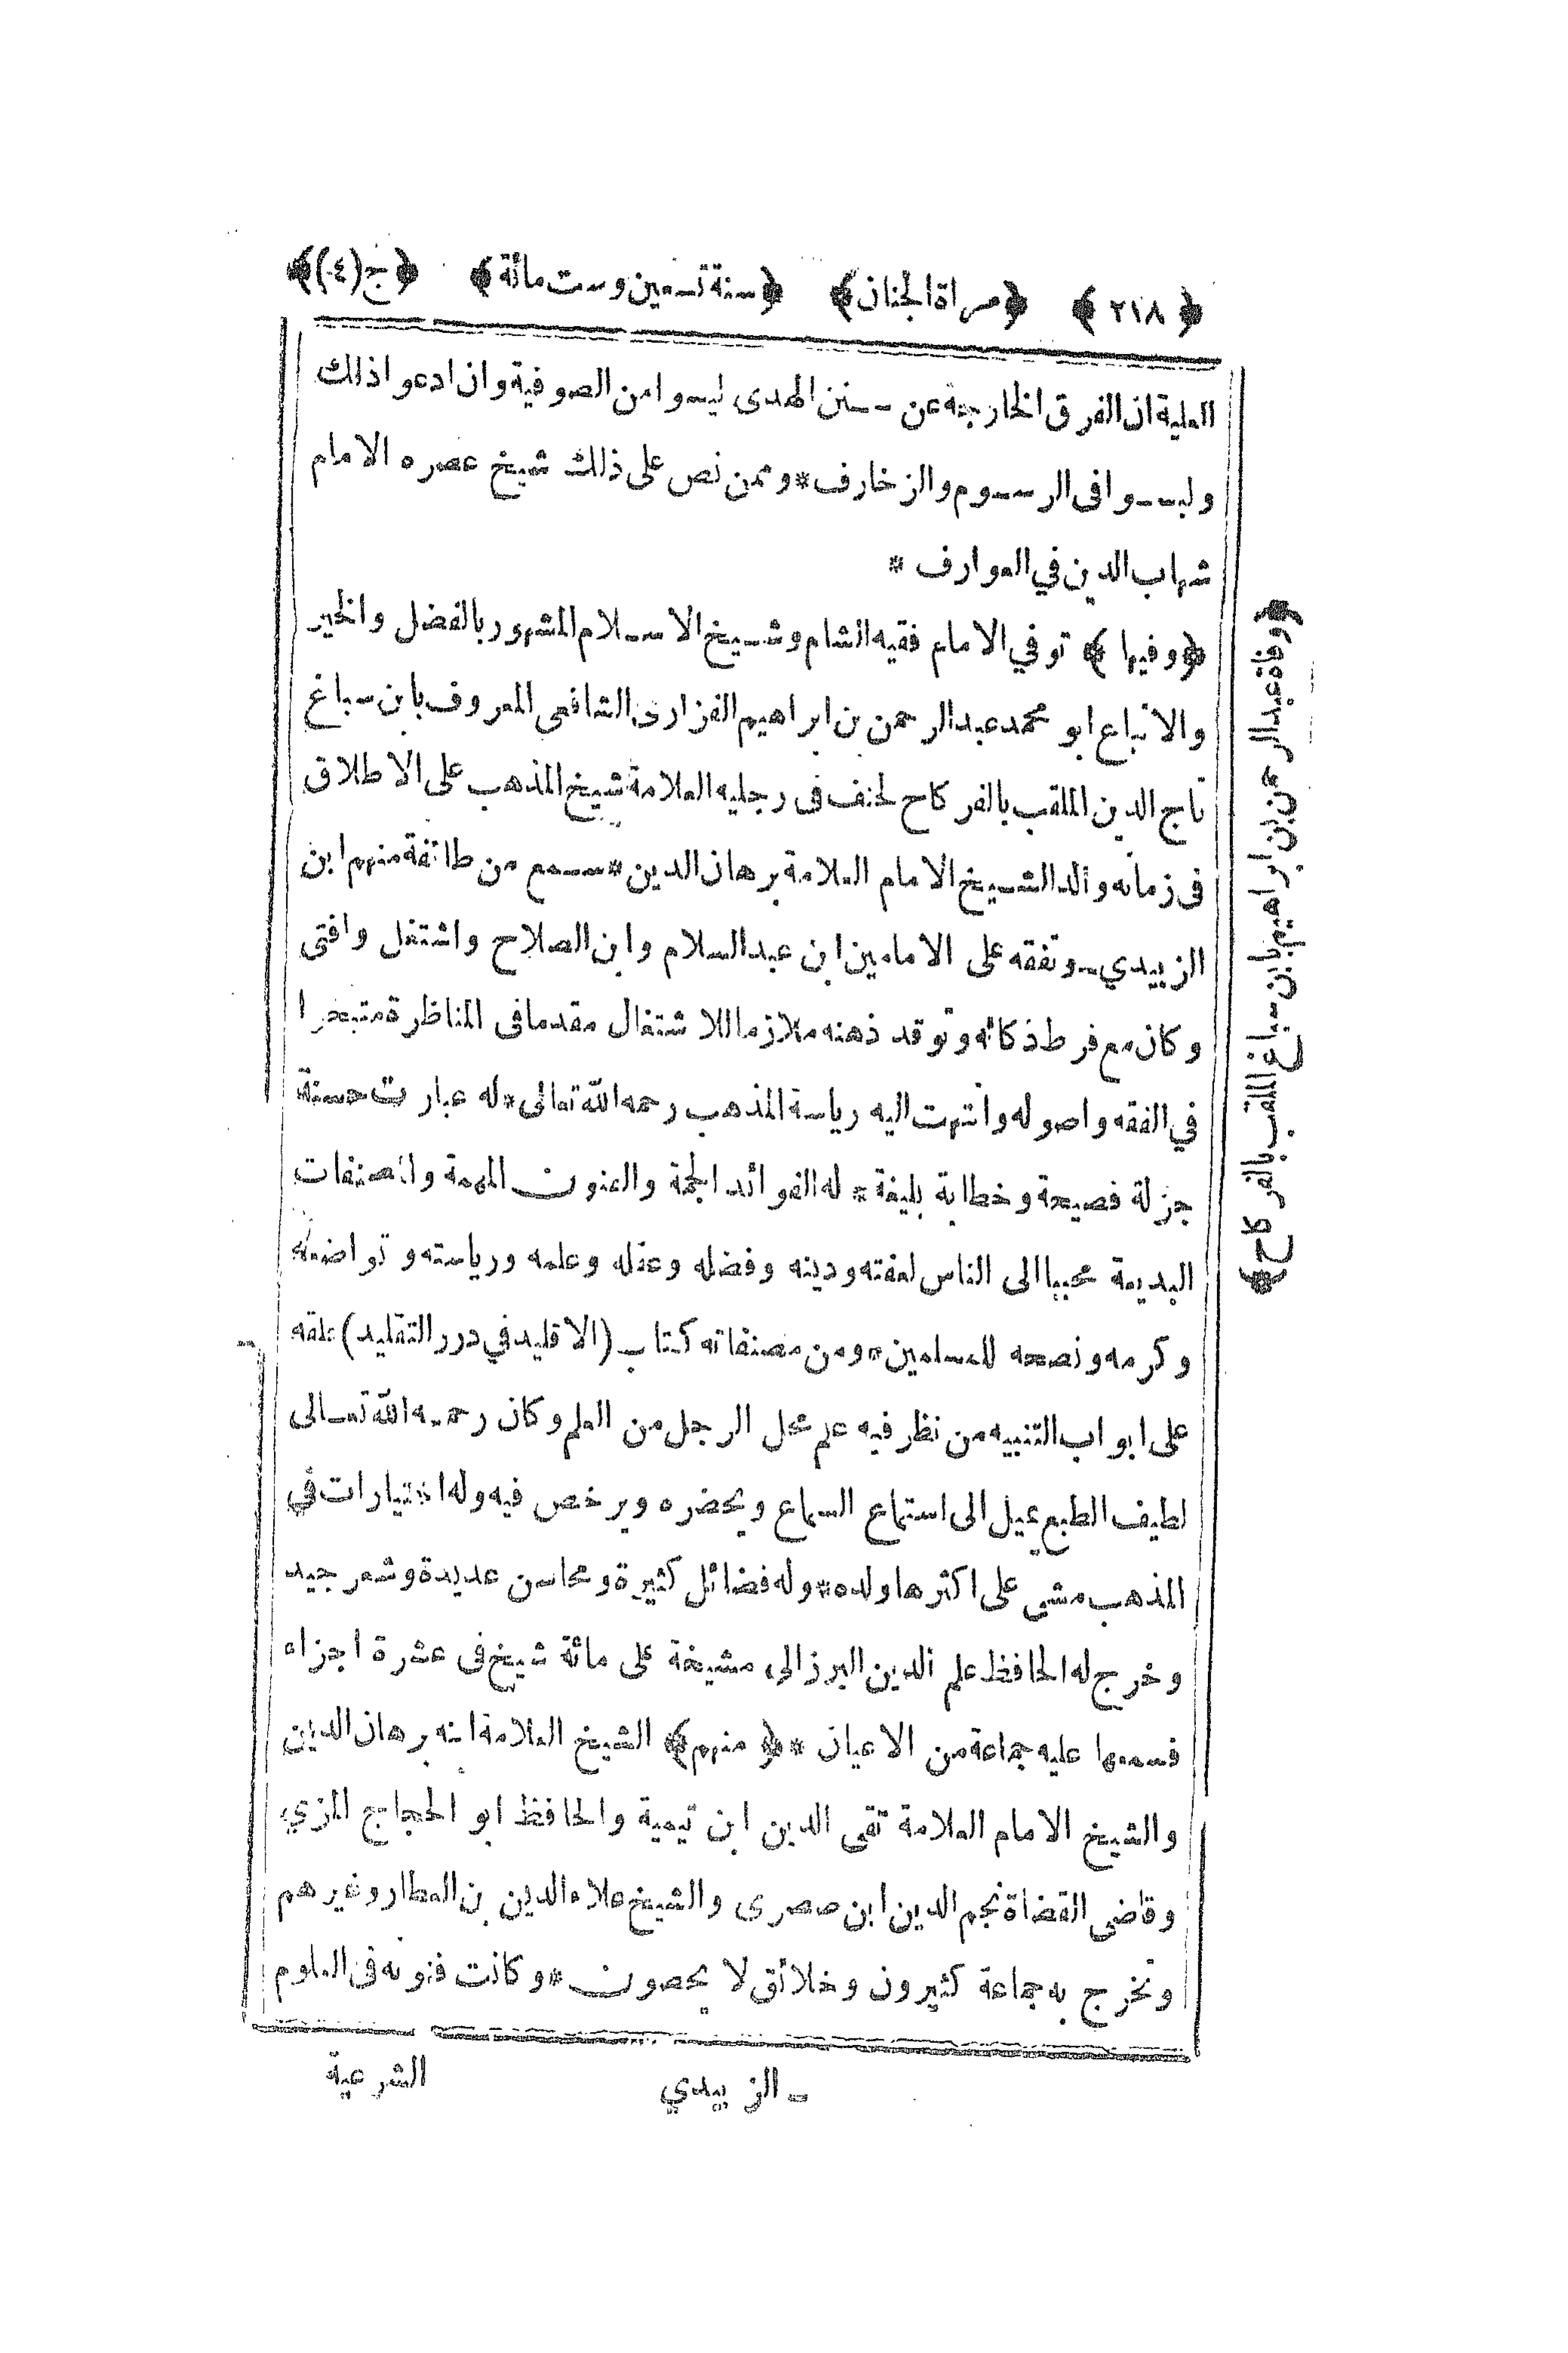 ﴿٢١٨﴾ ﴿مراة الجنان﴾ ﴿سنة تسعين وست مائة﴾ ﴿ج(٤)﴾
العلية ان الفرق الخارجة عن سنن الهدى ليسوا من الصوفية وان ادعوا ذلك
ولبسوا فى الرسوم والزخارف * وممن نص على ذلك شيخ عصره الامام
شهاب الدين في العوارف *
﴿وفيها﴾ توفي الامام فقيه الشام وشيخ الاسلام المشهور بالفضل والخير
والاتباع ابو محمد عبد الرحمن بن ابراهيم الفزارى الشافعى المعروف بابن سباغ
تاج الدين الملقب بالفركاح لحنف فى رجليه العلامة شيخ المذهب على الاطلاق
فى زمانه والد الشيخ الامام العلامة برهان الدين * سمع من طائفة منهم ابن
الزبيدي ـ وتفقه على الامامين ابن عبد السلام وابن الصلاح واشتغل وافتى
وكان مع فرط ذكائه وتوقد ذهنه ملازما للاشتغال مقدما فى المناظرة متبحرا
في الفقه واصوله وانتهت اليه رياسة المذهب رحمه الله تعالى * له عبارت حسنة
جزلة فصيحة وخطابة بليغة * له الفوائد الجمة والفنون المهمة والمصنفات
البديعة محببا الى الناس لعفته ودينه وفضله وعقله وعلمه ورياسته وتواضعه
وكرمه ونصحه للمسلمين * ومن مصنفاته كتاب (الاقليد في درر التقليد) علقه
على ابواب التنبيه من نظر فيه علم محل الرجل من العلم وكان رحمه الله تعالى
لطيف الطبع يميل الى استماع السماع ويحضره ويرخص فيه وله اختيارات في
المذهب مشى على اكثرها ولده * وله فضائل كثيرة ومحاسن عديدة وشعر جيد
وخرج له الحافظ علم الدين البرزالى مشيخة على مائة شيخ فى عشرة اجزاء
فسمعها عليه جماعة من الاعيان * ﴿منهم﴾ الشيخ العلامة ابنه برهان الدين
والشيخ الامام العلامة تقى الدين ابن تيمية والحافظ ابو الحجاج المزي
وقاضى القضاة نجم الدين ابن صصرى والشيخ علاء الدين بن العطار وغيرهم
وتخرج به جماعة كثيرون وخلائق لا يحصون * وكانت فنونه فى العلوم
ـ الزبيدي
الشرعية
﴿وفاة عبد الرحمن بن ابراهيم بابن سباغ الملقب بالفركاح﴾